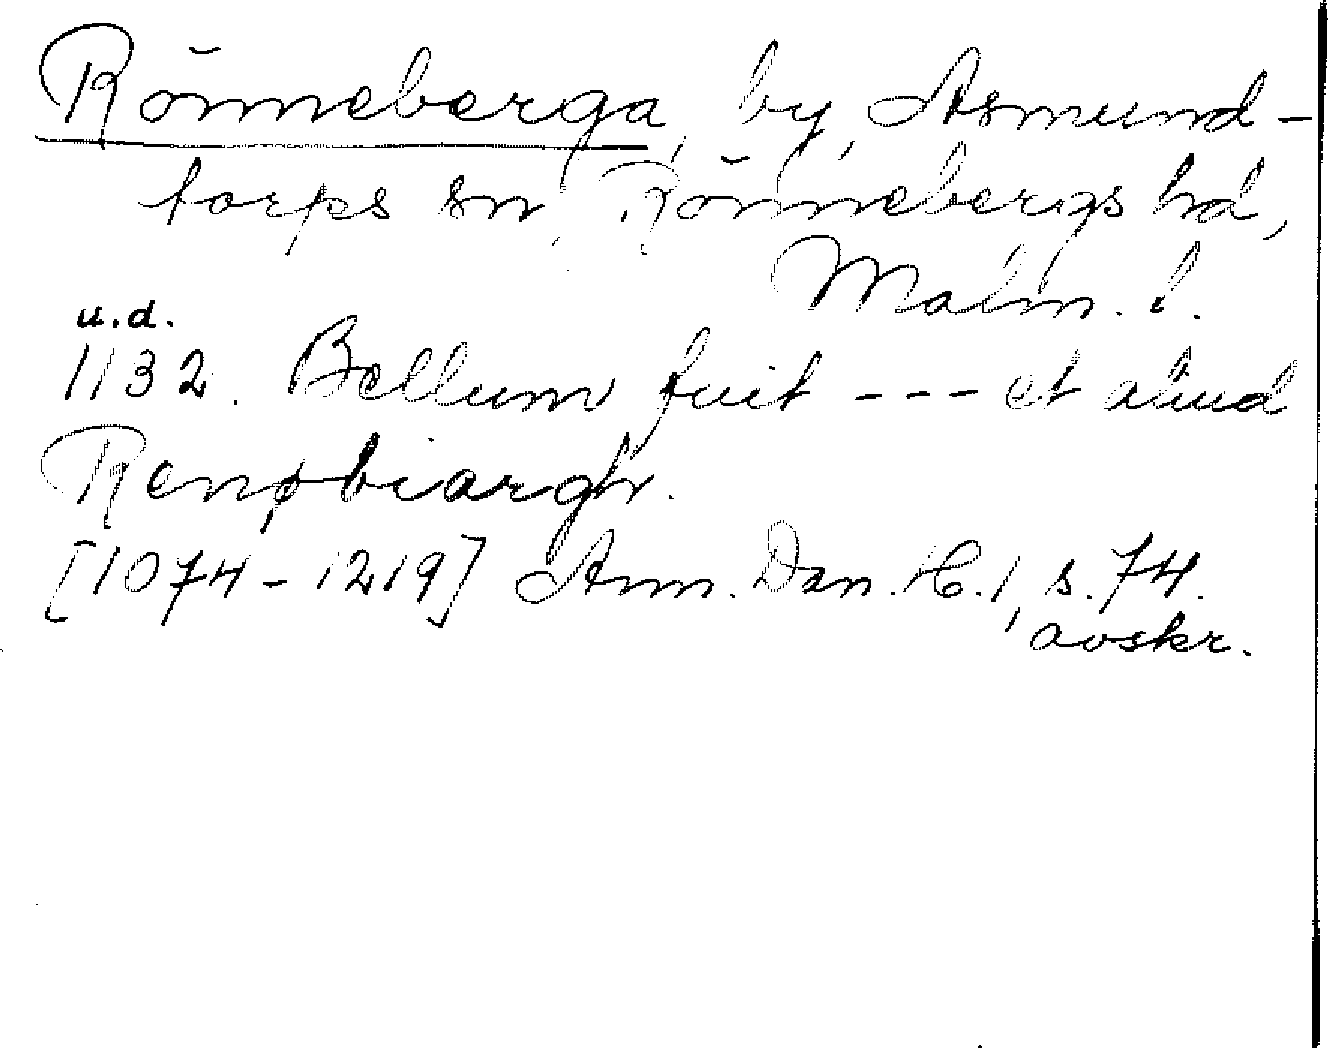 Rönneberga, by, Asmund-
torps sn, Rönnebergs hd,
Malm. l.
u.d.
1132. Bellum fuit --- et aliud
Renøbiargh.
[1074-1219] Ann. Dan. H. 1, s. 74.
avskr.